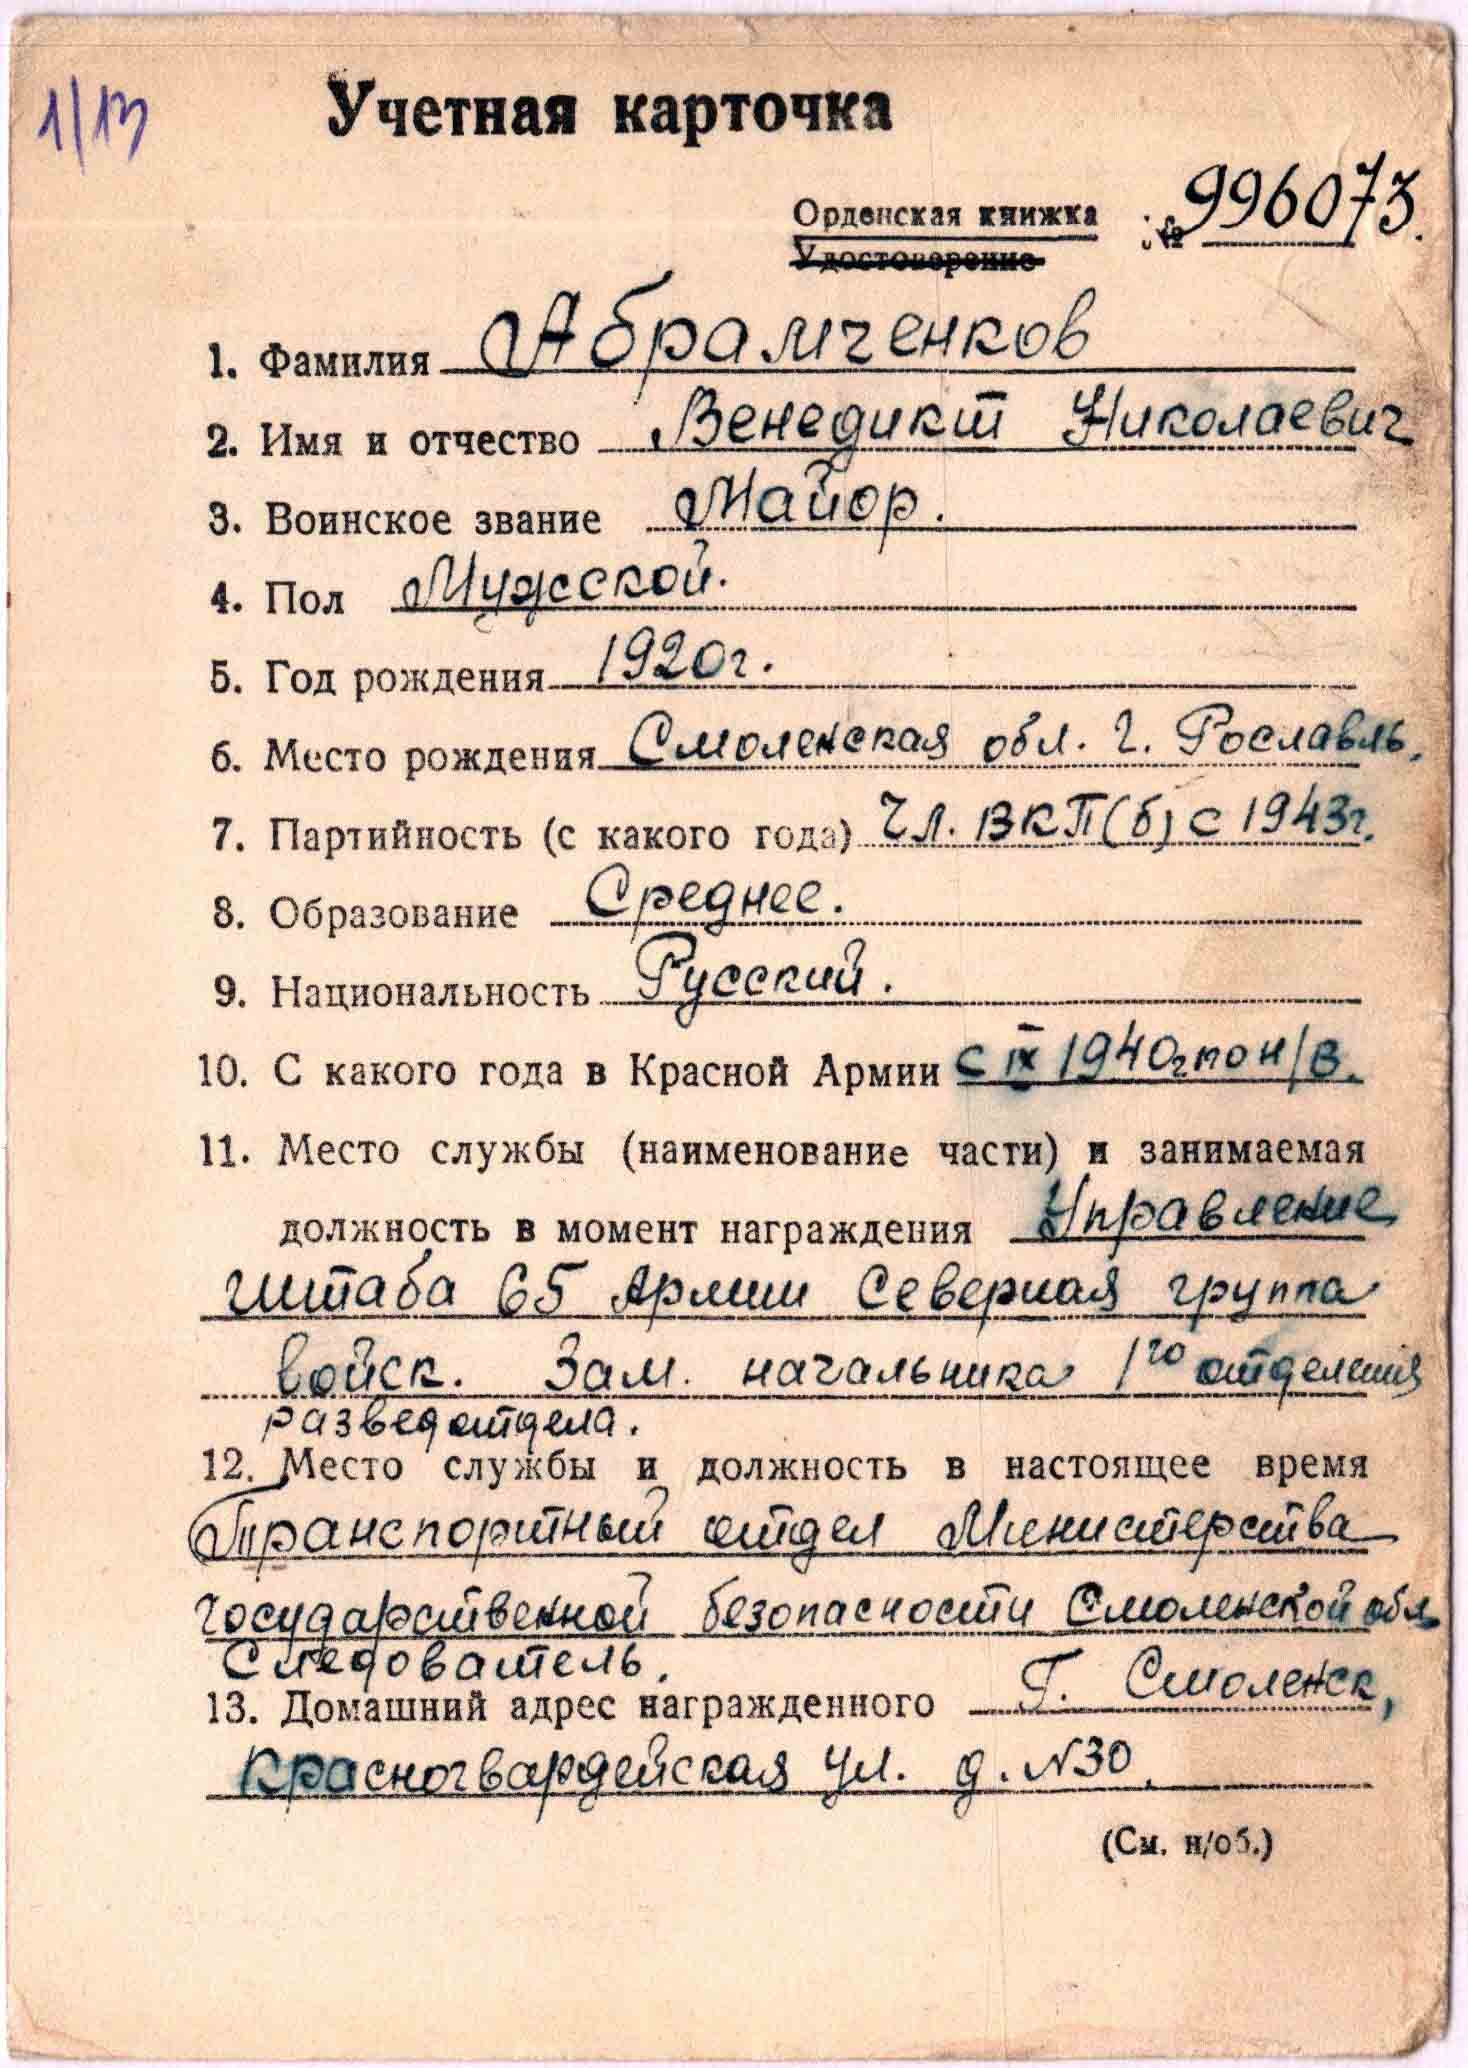 1/13
Учетная карточка
Орденская книжка № 996073.
Удостоверение
1. Фамилия Абрамченков
2. Имя и отчество Венедикт Николаевич
3. Воинское звание Майор.
4. Пол Мужской.
5. Год рождения 1920г.
6. Место рождения Смоленская обл. г. Рославль.
7. Партийность (с какого года) Чл. ВКП(б) с 1943г.
8. Образование Среднее.
9. Национальность Русский.
10. С какого года в Красной Армии с IX 1940г по н/в.
11. Место службы (наименование части) и занимаемая
должность в момент награждения Управление
штаба 65 Армии Северная группа
войск. Зам. начальника 1го отделения
разведотдела.
12. Место службы и должность в настоящее время
Транспортный отдел Министерства
государственной безопасности Смоленской обл
Следователь.
13. Домашний адрес награжденного Г. Смоленск,
Красногвардейская ул. д. N30.
(См. н/об.)